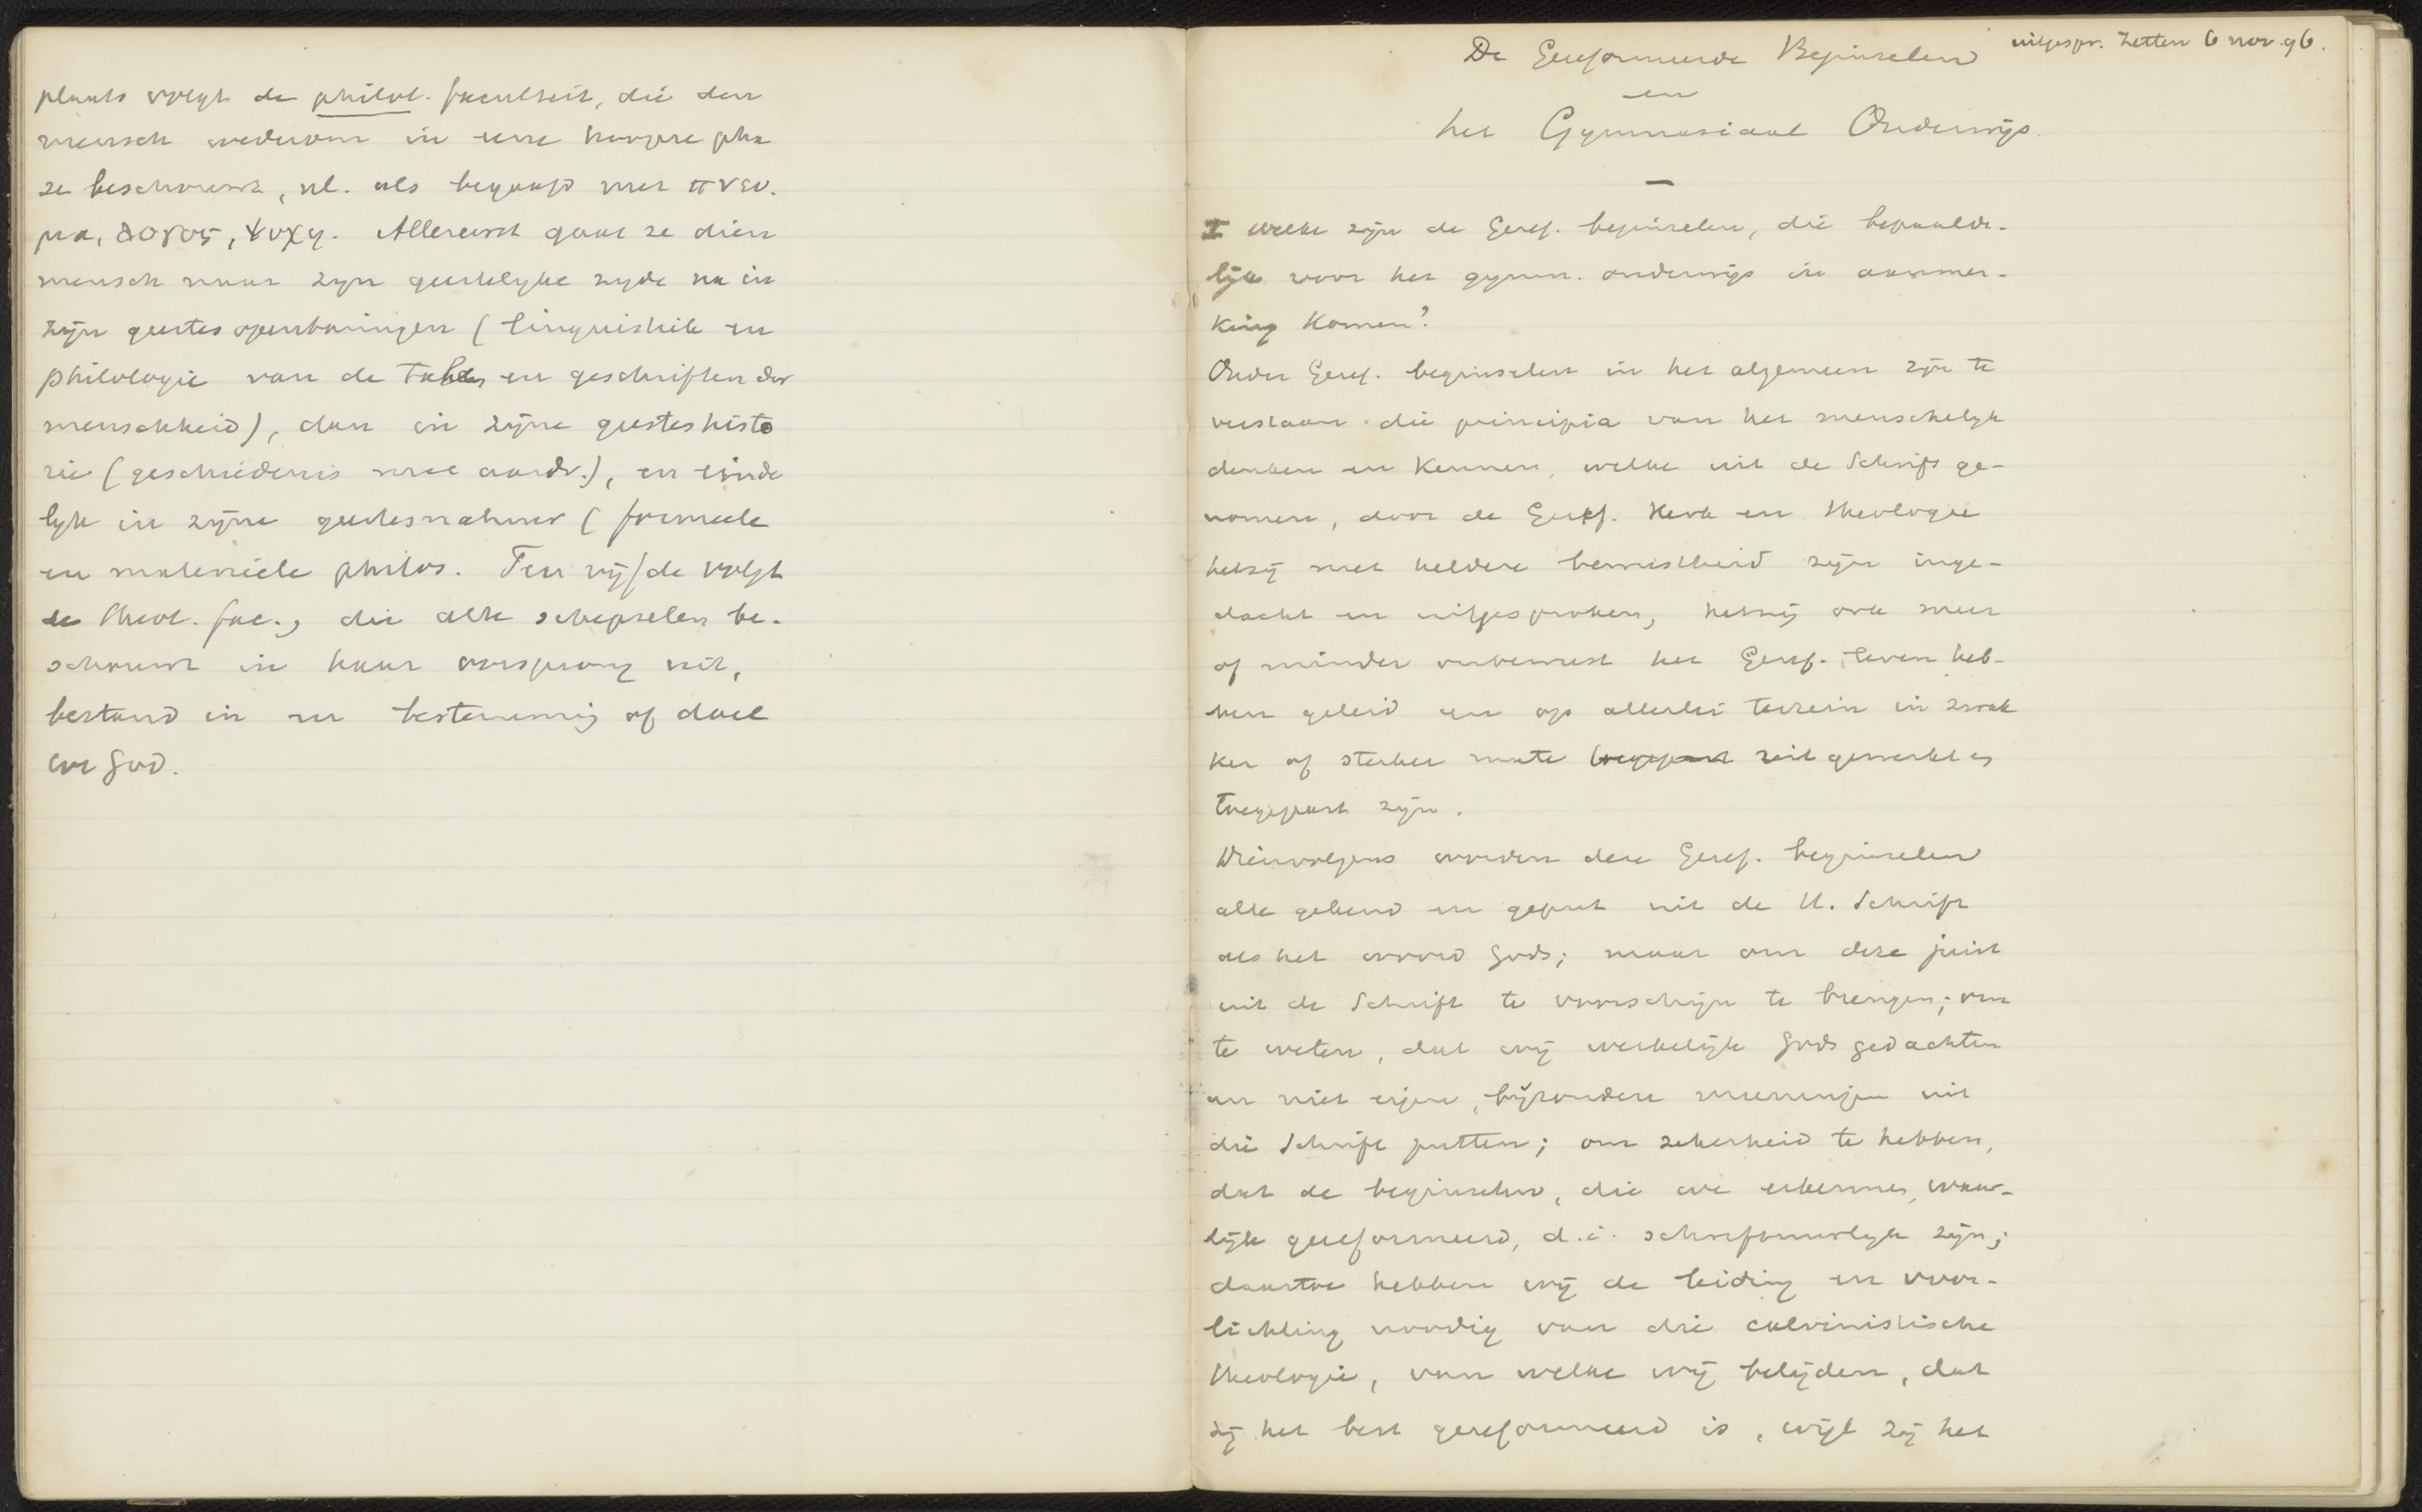 plaats volgt de philol. faculteit, die den
mensch wederom in eene hoogere pha
ze beschouwt, nl. als begaafd met πνευ.
μα, λογος, ψυχη. Allereerst gaat ze dien
mensch naar zijn geestelyke zyde na in
zijn geestesopenbaringen (linguistiek en
philologie van de talen en geschriften der
menschheid), dan in zijne geesteshisto
rie (geschiedenis met aardr.), en einde
lyk in zijne geestesnatuur (formeele
en materieele philos. Ten vijfde volgt
de theol. fac., die alle schepselen be-
schouwt in haar oorsprong uit,
bestand in en bestemming of doel
in God.
uitgespr. Zetten 6 nov. 96.
De Gereformeerde Beginselen
en
het Gymnasiaal Onderwijs.
I Welke zijn de Geref. beginselen, die bepaalde-
lijk voor het gymn. onderwijs in aanmer-
king komen?
Onder Geref. beginselen in het algemeen zijn te
verstaan die principia van het menschelijk
denken en kennen, welke uit de Schrift ge-
nomen, door de Geref. Kerk en theologie
hetzij met heldere bewustheid zijn inge-
dacht en uitgesproken, hetzij ook meer
of minder onbewust het Geref. leven heb-
ben geleid en op allerlei terrein in zwak
ker of sterker mate toegepast uitgewerkt en
toegepast zijn.
Dienvolgens worden deze Geref. beginselen
alle gekend en geput uit de H. Schrift
als het woord Gods; maar om deze juist
uit de Schrift te voorschijn te brengen; om
te weten, dat wij werkelijk Gods gedachten
en niet eigen, bijzondere meeningen uit
die Schrift putten; om zekerheid te hebben,
dat de beginselen, die we erkennen, waar-
lijk gereformeerd, d.i. schriftuurlijk zijn;
daartoe hebben wij de leiding en voor-
lichting noodig van die calvinistische
theologie, van welke wij belijden, dat
zij het best gereformeerd is, wijl zij het